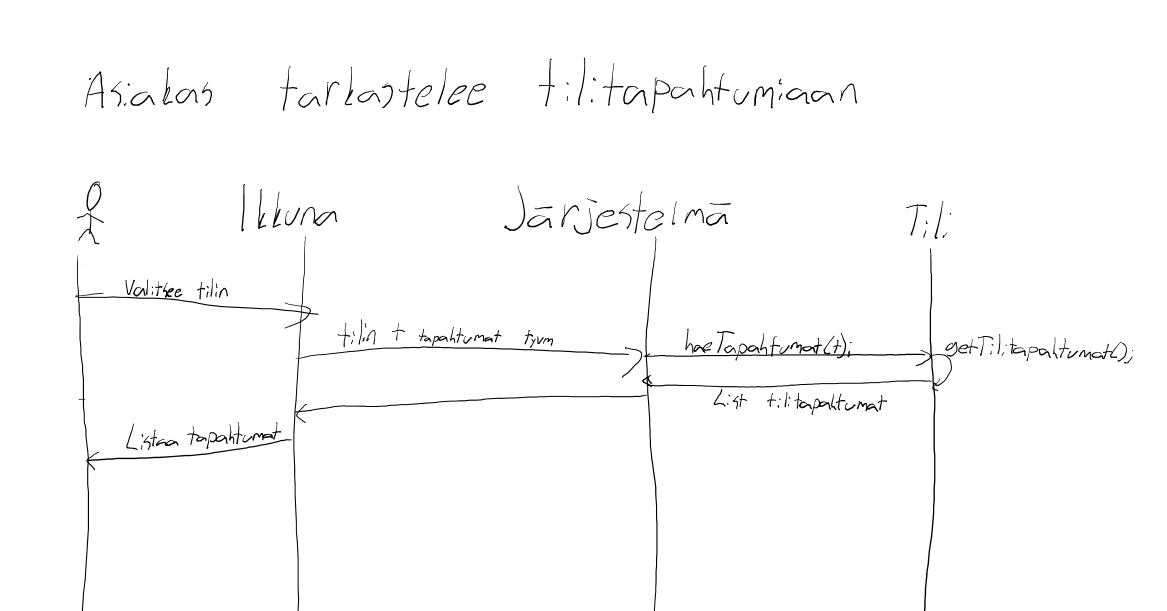 Asiakas tarkastelee tilitapahtumiaan
Ikkuna Järjestelmä Tili
Valitsee tilin
tilin t tapahtumat
haeTapahtumat(t);
getTilitapahtumat();
List tilitapahtumat
Listaa tapahtumat